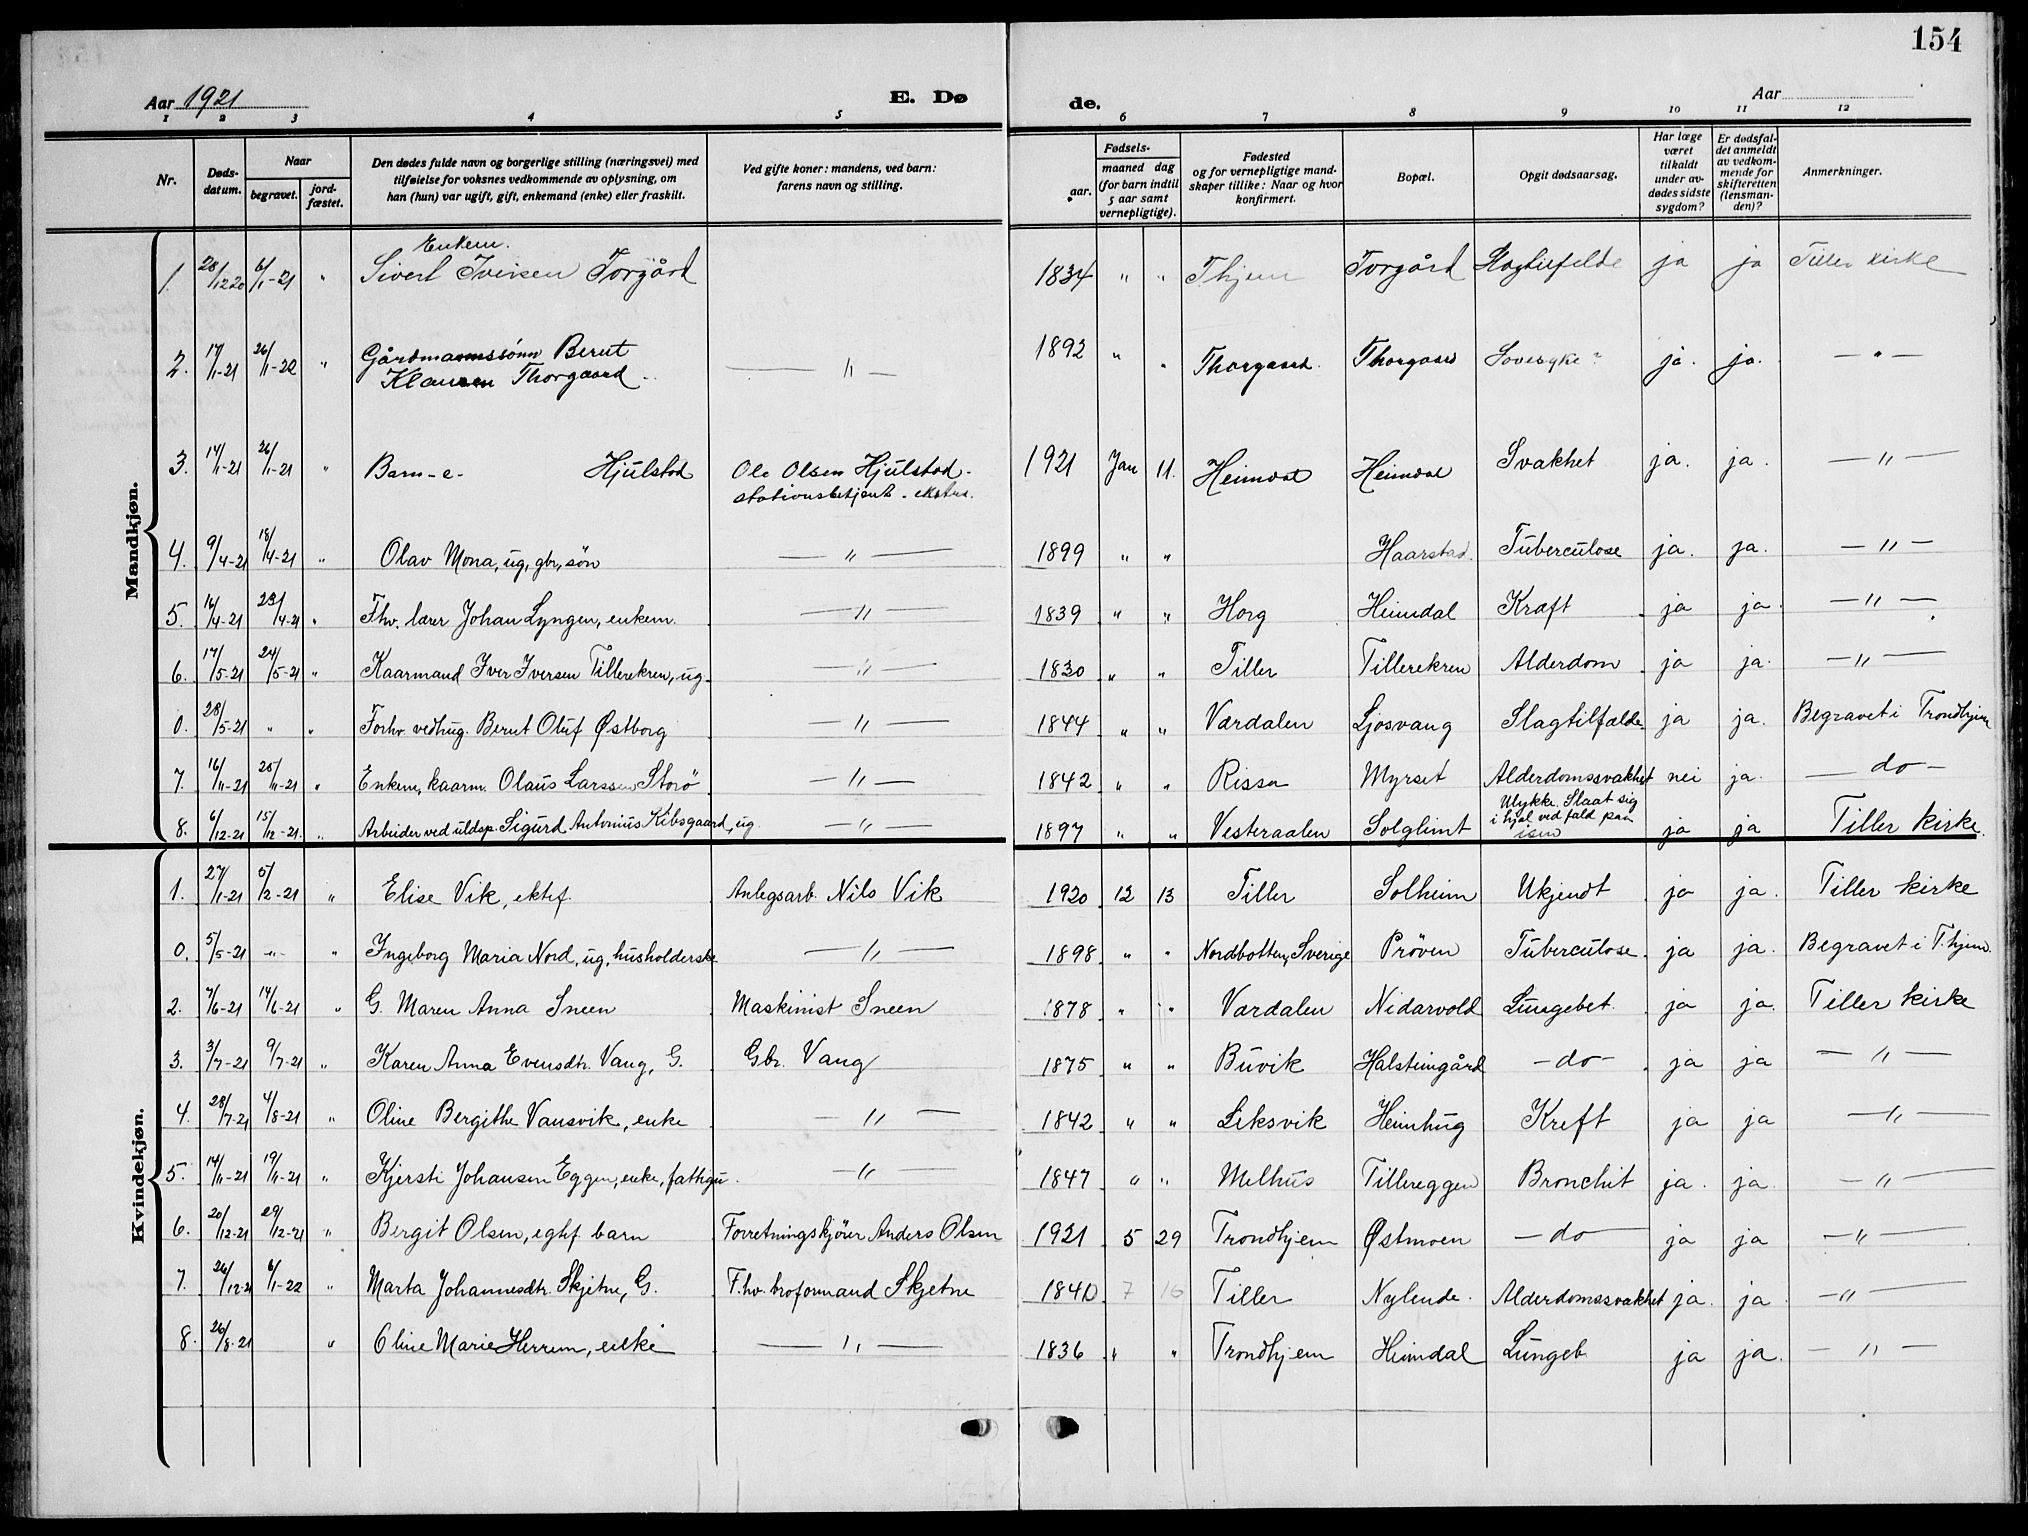 154
Aar 1921
E. Dø
de.
Aar
1 2 3 4 5 6 7 8 9 10 11 12
Nr.
Døds-datum.
Naar
begravet.
jord-fæstet.
Den dødes fulde navn og borgerlige stilling (næringsvei) med
tilføielse for voksnes vedkommende av oplysning, om
han (hun) var ugift, gift, enkemand (enke) eller fraskilt.
Ved gifte koner: mandens, ved barn:
farens navn og stilling.
Fødsels-
aar.
maaned dag
(for barn indtil
5 aar samt
vernepligtige).
Fødested
og for vernepligtige mand-
skaper tillike: Naar og hvor
konfirmert.
Bopæl.
Opgit dødsaarsag.
Har læge
været
tilkaldt
under av-
dødes sidste
sygdom?
Er dødsfal-
det anmeldt
av vedkom-
mende for
skifteretten
(lensman-
den)?
Anmerkninger.
Mandkjøn.
Enkem.
1. 28/12 20 6/1-21 " Sivert Iversen Torgård 1834 " " Thjem Torgård Slagtilfelde ja ja Tiller kirke
2. 17/1-21 26/1-22 " Gårdmannssønn Berut
Klausen Thorgaard — " — 1892 " " Thorgaard. Thorgaard Sovesyke? ja. ja. — " —
3. 17/1-21 26/1-21 " Barn-e- Hjulstad Ole Olsen Hjulstad-
stationsbetjent - ekstra. 1921 Jan 11. Heimdal Heimdal Svakhet ja. ja. — " —
4. 9/4-21 18/4-21 " Olav Mona, ug, gbr, søn — " — 1899 " " Haarstad. Tuberculose ja. ja. — " —
5. 16/4-21 23/4-21 " Fhv. lærer Johan Lyngen, enkem. — " — 1839 " " Horg Heimdal Kræft ja ja. — " —
6. 17/5-21 24/5-21 " Kaarmand Iver Iversen Tillerekren, ug. — " — 1830 " " Tiller Tillerekren Alderdom ja ja. — " —
0. 28/5-21 " " Forhv. vedhug. Berut Oluf Østborg — " — 1844 " " Værdalen Ljosvang Slagtilfælde ja ja. Begravet i Trondhjem
7. 16/11-21 25/11-21 " Enkem, kaarm. Olaus Larssen Storö — " — 1842 " " Rissa Myrset Alderdomssvakhet nei ja. — do —
8. 6/12-21 15/12-21. " Arbeider ved uldsp. Sigurd Antonius Kibsgaard, ug. — " — 1897 " " Vesteraalen Solglimt Ulykke. Slaat sig
i hjel ved fald paa
isen ja ja Tiller kirke.
Kvindekjøn.
1. 27/1-21 5/2-21 " Elise Vik, ektef. Anlegsarb. Nils Vik 1920 12 13 Tiller Solheim Ukjendt ja ja. Tiller kirke
0. 5/5-21 -"- " Ingeborg Maria Nord, ug, husholderske — " — 1898 " " Nordbotten, Sverige Prøven Tuberculose ja ja. Begravet i T.hjem.
2. 7/6-21 14/6-21 " G. Maren Anna Sneen Maskinist Sneen 1878 " " Værdalen Nidarvold Lungebet. ja ja. Tiller kirke
3. 3/7-21 9/7-21 " Karen Anna Evensdtr. Vang, G. Gbr. Vang 1875 " " Buvik Halsteingård — do — ja ja — " —
4. 28/7-21 4/8-21 " Oline Bergithe Vansvik, enke — " — 1842 " " Leksvik Heimhug Kreft ja ja — " —
5. 14/11-21 19/11-21 " Kjersti Johansen Eggen, enke, fathgu. — " — 1847 " " Melhus Tillereggen Bronchit ja. ja. — " —
6. 20/12-21 29/12-21 " Bergit Olsen, eghf barn Forretningskjører Anders Olsen 1921 5 29 Trondhjem Østmoen — do — ja ja — " —
7. 26/12-21 6/1-22 " Marta Johannesdtr. Skjetne, G. F.hv. broformand Skjetne 1840 7 16 Tiller Nylende. Alderdomssvakhet ja. ja. — " —
8. 26/8-21 " Oline Marie Herrem, enke — " — 1836 " " Trondhjem Heimdal Lungeb. ja ja. — " —